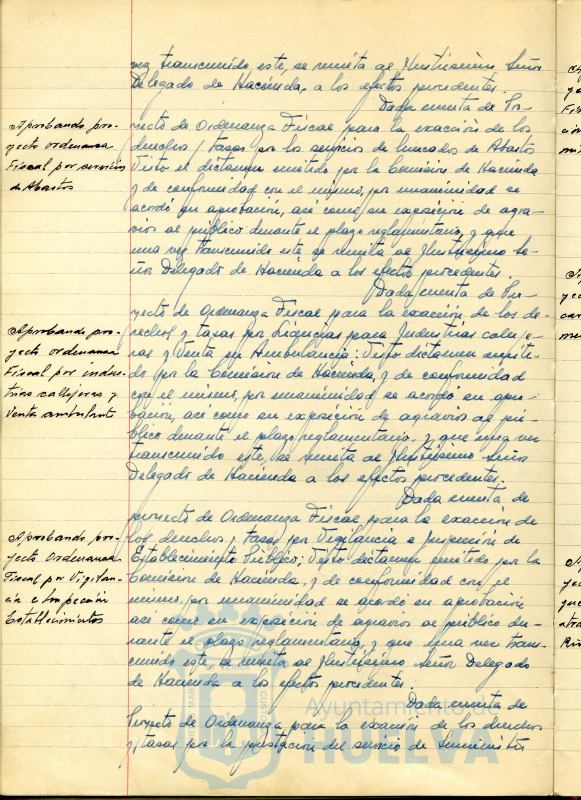 vez transcurrido este, se remita al Ilustrísimo Señor
Delegado de Hacienda, a los efectos procedentes.
Dada cuenta de Pro-
yecto de Ordenanza Fiscal para la exacción de los
derechos y tasas por los servicios de Mercados de Abastos
Visto el dictamen emitido por la Comisión de Hacienda
y de conformidad con el mismo, por unanimidad se
acordó su aprobación, así como su exposición de agra-
vios al público durante el plazo reglamentario, y que
una vez transcurrido este se remita al Ilustrísimo Se-
ñor Delegado de Hacienda a los efectos procedentes.
Dada cuenta de Pro-
yecto de Ordenanza Fiscal para la exacción de los de-
rechos y tasas por Licencias para Industrias calleje-
ras y Venta en Ambulancia; Visto dictamen emiti-
do por la Comisión de Hacienda, y de conformidad
con el mismo, por unanimidad se acordó su apro-
bación, así como su exposición de agravios al pú-
blico durante el plazo reglamentario, y que una vez
transcurrido este, se remita al Ilustrísimo Señor
Delegado de Hacienda a los efectos procedentes.
Dada cuenta de
proyecto de Ordenanza Fiscal para la exacción de
los derechos y tasas por Vigilancia e Inspección de
Establecimiento Público; Visto dictamen emitido por la
Comisión de Hacienda, y de conformidad con el
mismo, por unanimidad se acordó su aprobación
así como su exposición de agravios al público du-
rante el plazo reglamentario, y que una vez trans-
currido este, se remita al Ilustrísimo Señor Delegado
de Hacienda a los efectos procedentes.
Dada cuenta de
Proyecto de Ordenanza para la exacción de los derechos
y tasas por la prestación del servicio de Suministro
Aprobando pro-
yecto ordenanza
Fiscal por servicios
de Abastos
Aprobando pro-
yecto ordenanza
Fiscal por indus-
trias callejeras y
Venta ambulante
Aprobando pro-
yecto Ordenanza
Fiscal por Vigilan-
cia e Inspección
Establecimientos
Ayuntamiento de
HUELVA